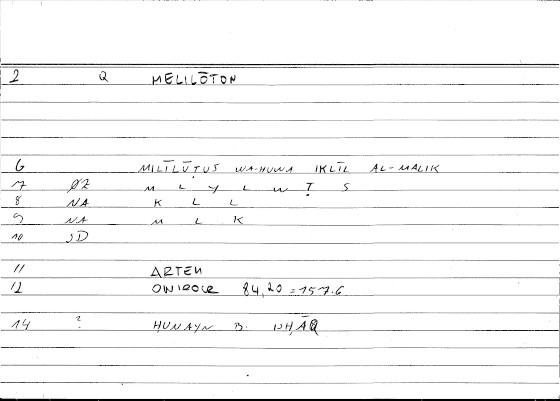 2 Q MELILŌTON
6 MILĪLŪṬUS WA-HUWA IKLĪL AL-MALIK
7 ØZ M L Y L W Ṭ S
8 NA K L L
9 NA M L K
10 JD
11 ARTEM
12 ONIROCR 84,20 = 157.6
14 ? ḤUNAYN B. ISḤĀQ